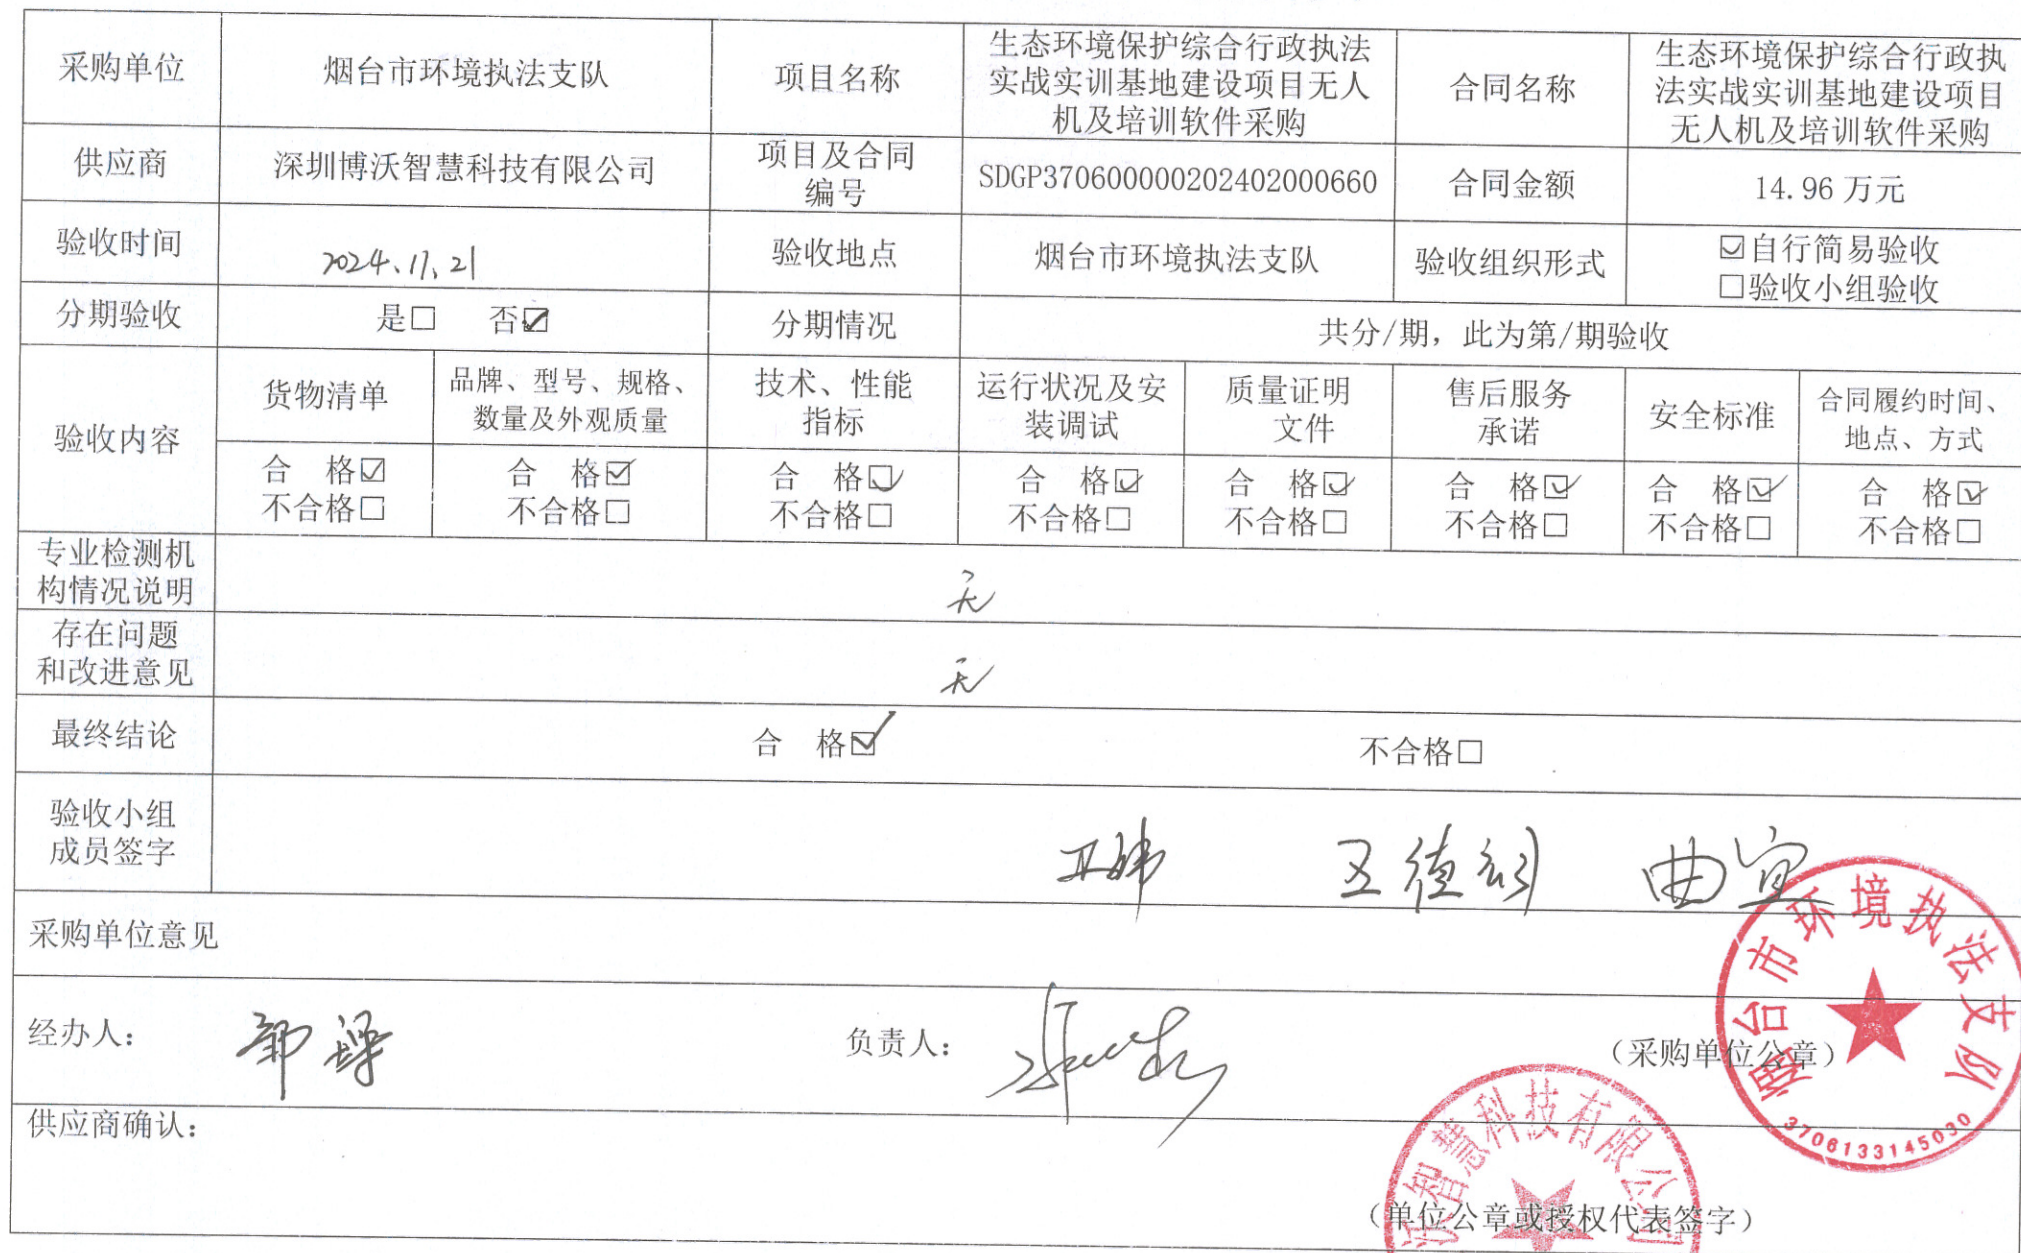 采购单位
烟台市环境执法支队
项目名称
生态环境保护综合行政执法
实战实训基地建设项目无人
机及培训软件采购
合同名称
生态环境保护综合行政执
法实战实训基地建设项目
无人机及培训软件采购
供应商
深圳博沃智慧科技有限公司
项目及合同
编号
SDGP370600000202402000660
合同金额
14.96 万元
验收时间
2024、11、21
验收地点
烟台市环境执法支队
验收组织形式
☑自行简易验收
□验收小组验收
分期验收
是□ 否☑
分期情况
共分/期，此为第/期验收
验收内容
货物清单
品牌、型号、规格、
数量及外观质量
技术、性能
指标
运行状况及安
装调试
质量证明
文件
售后服务
承诺
安全标准
合同履约时间、
地点、方式
合 格☑
不合格□
合 格☑
不合格□
合 格☑
不合格□
合 格☑
不合格□
合 格☑
不合格□
合 格☑
不合格□
合 格☑
不合格□
合 格☑
不合格□
专业检测机
构情况说明
无
存在问题
和改进意见
无
最终结论
合 格☑
不合格□
验收小组
成员签字
曲宜
采购单位意见
经办人：
负责人：
（采购单位公章）
烟台市环境执法支队
3706133145030
供应商确认：
（单位公章或授权代表签字）
沃智慧科技有限公司